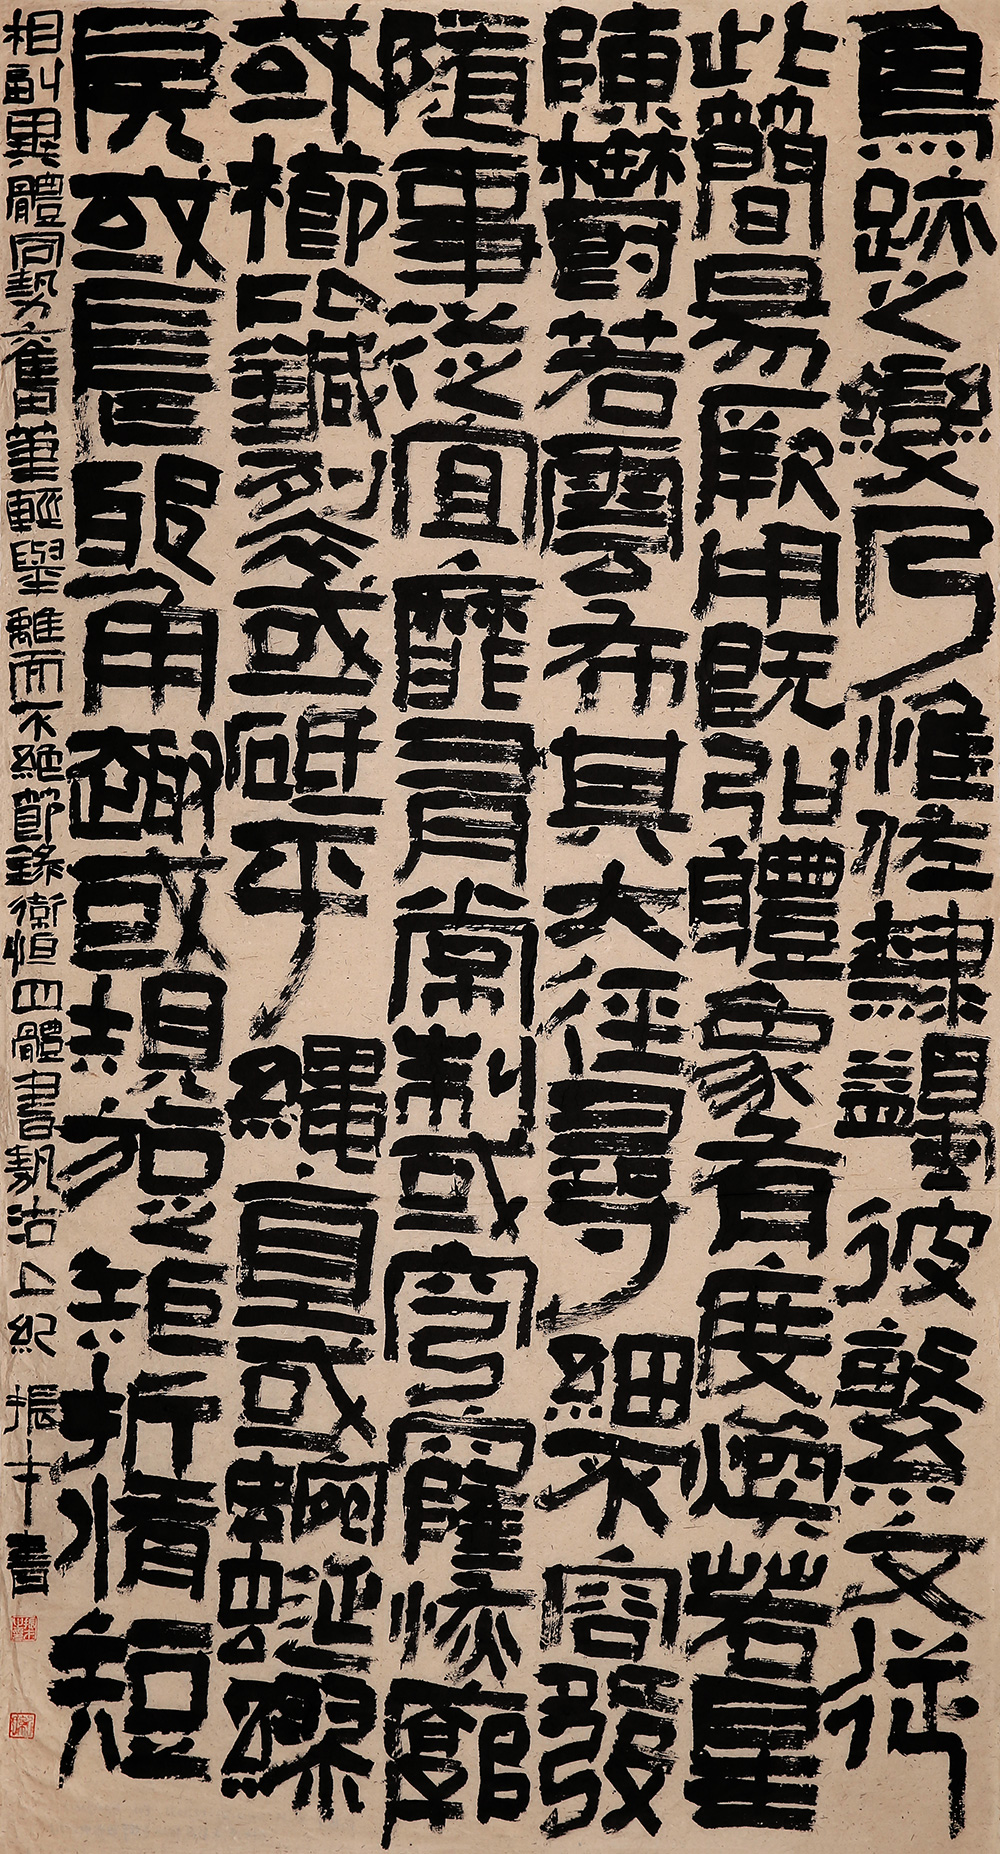 鳥跡之變乃惟佐隸蠲彼繁文從
此簡易厥用既弘體象有度煥若星
陳鬱若雲布其大徑尋細不容發
隨事從宜靡有常制或穹窿恢廓
或櫛比鍼列或砥平繩直或蜿蜒繆
戾或長邪角趣或規旋矩折脩短
相副異體同勢奮筆輕舉離而不絕節錄衛恒四體書勢沽上紀振十書